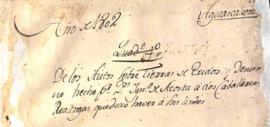 Año de 1802 Aguascalientes
Quad.no 4.o
De los Autos sobre tierras de Exidos y denun
cio hecho p.r D.n de Acosta a dos Caballerias
Realengas quedaro haver a sus lindes